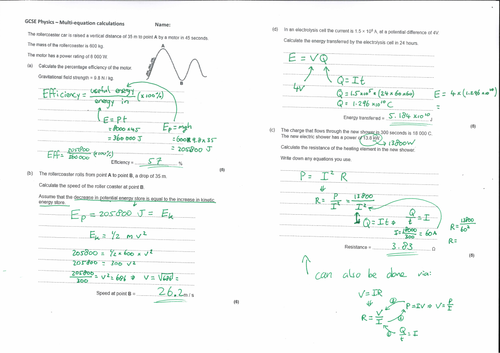 GCSE Physics – Multi-equation calculations Name:
The rollercoaster car is raised a vertical distance of 35 m to point A by a motor in 45 seconds.
The mass of the rollercoaster is 600 kg.
The motor has a power rating of 8 000 W.
A
B
(a) Calculate the percentage efficiency of the motor.
Gravitational field strength = 9.8 N / kg.
Efficiency = useful energy (x100%)
energy in
E = Pt
= 8000 x 45
= 360000 J
Ep = mgh
= 600 x 9.8 x 35
= 205800 J
Eff = 205800 (x100%)
360 000
Efficiency = 57 %
(6)
(b) The rollercoaster rolls from point A to point B, a drop of 35 m.
Calculate the speed of the roller coaster at point B.
Assume that the decrease in potential energy store is equal to the increase in kinetic
energy store.
Ep = 205800 J = Ek
Ek = 1/2 m v²
205800 = 1/2 x 600 x v²
205800 = 300 v²
205800 = v² = 686 ⇒ v = √686 =
300
Speed at point B = 26.2 m / s
(6)
(d) In an electrolysis cell the current is 1.5 × 10⁵ A, at a potential difference of 4V
Calculate the energy transferred by the electrolysis cell in 24 hours.
E = VQ
4V
Q = It
Q = 1.5x10⁵ x (24 x 60 x 60)
Q = 1.296 x10¹⁰ C
E = 4 x (1.296 x10¹⁰)
Energy transferred = 5.184 x10¹⁰ J
(6)
(c) The charge that flows through the new shower in 300 seconds is 18 000 C.
The new electric shower has a power of 13.8 kW.
13800W
Calculate the resistance of the heating element in the new shower.
Write down any equations you use.
P = I² R
R = P = 13800
I² I²
Q = It ⇒ Q = I
t
I = 18000 = 60A
300
R = 13800
60²
R =
Resistance = 3.83 Ω
(6)
↑ can also be done via:
V = IR
R = V
I
P = IV ⇒ V = P
I
Q = I
t